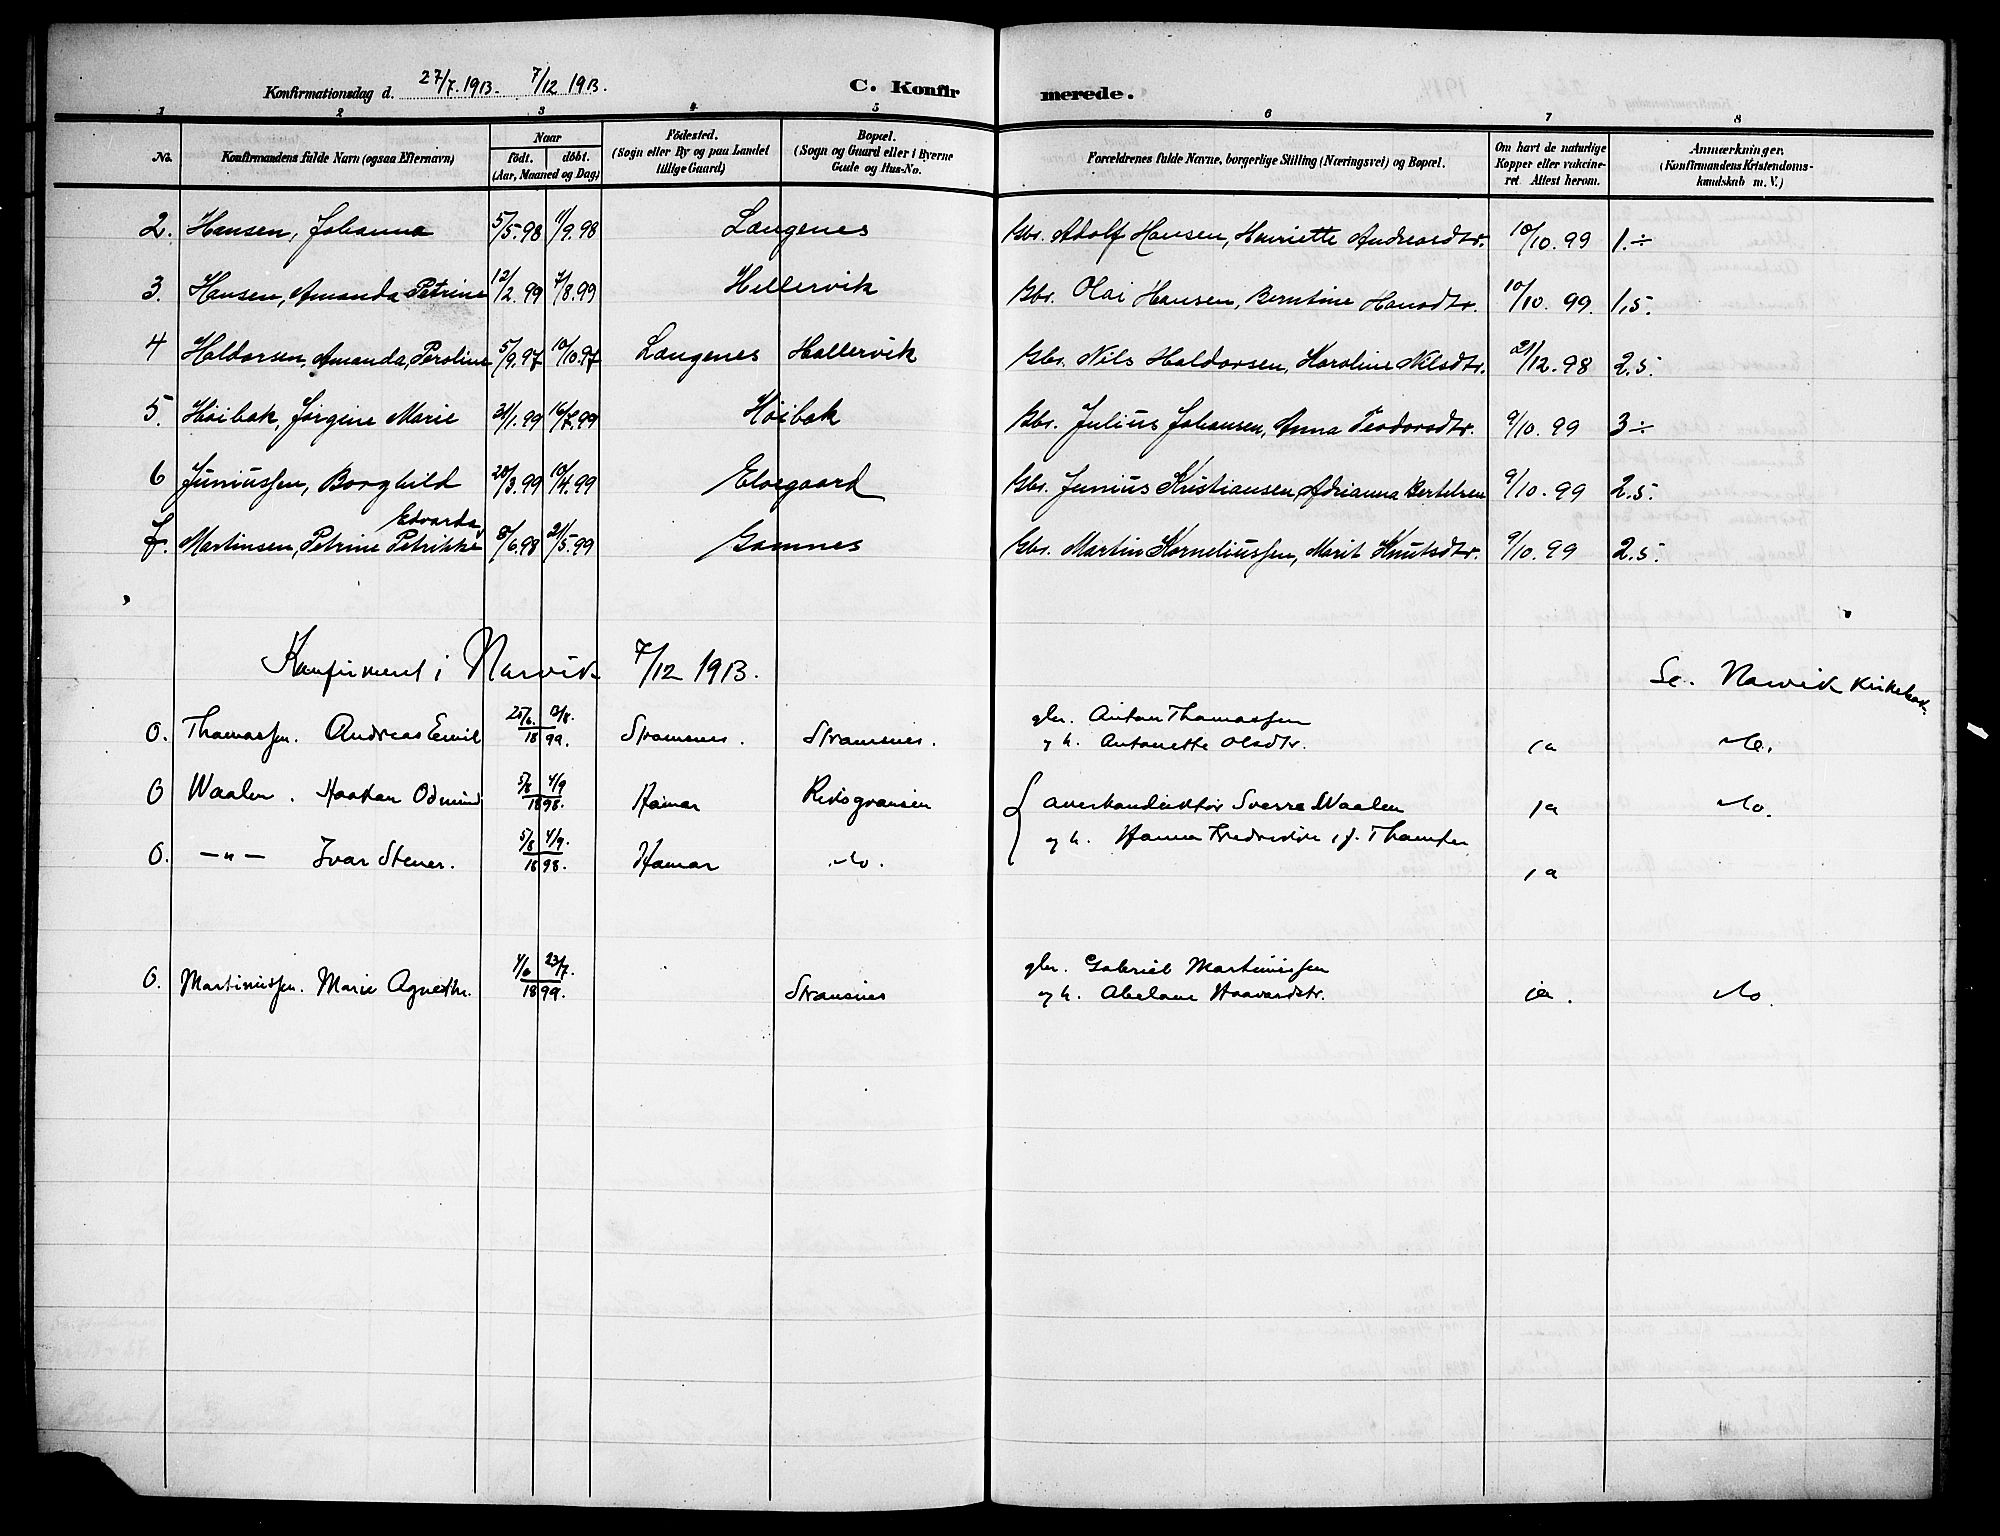 Konfirmationsdag d. 27/7. 1913. 7/12 1913. C. Konfirmerede.
1 2 3 4 5 6 7 8
No. Konfirmandens fulde Navn (ogsaa Efternavn) Naar født. døbt. (Aar, Maaned og Dag) Fødested. (Sogn eller By og paa Landet tillige Gaard) Bopæl. (Sogn og Gaard eller i Byerne Gade og Hus-No. Forældrenes fulde Navne, borgerlige Stilling (Næringsvei) og Bopæl. Om havt de naturlige Kopper eller vakcineret. Attest herom. Anmærkninger. (Konfirmandens Kristendomskundskab m. V.)
2. Hansen, Johanna 5/5.98 11/9.98 Langenes Gbr. Adolf Hansen, Henriette Andreasdtr. 10/10.99 1 ÷
3. Hansen, Amanda Petrine 12/2.99 7/8.99 Hellervik Gbr. Olai Hansen, Berntine Hansdtr. 10/10.99. 1,5.
4 Haldorsen, Amanda, Peroline 5/9.97 10/10.97 Langenes Hallervik Gbr. Nils Haldorsen, Karoline Nilsdtr. 21/12.98 2.5.
5. Høibak, Jørgine Marie 31/1.99 16/7.99 Høibak Gbr. Julius Johansen, Anna Teodorsdtr. 9/10.99 3 ÷
6 Juniussen, Borghild 20/3.99 10/4.99 Elvegaard Gbr. Junius Kristiansen, Adrianna Bertelsen 9/10.99 2.5.
Edvarda
7. Martinsen, Petrine Petrikke 8/6.98 21/5.99 Gamnes Gbr. Martin Korneliussen, Marit Knutsdtr. 9/10.99 2.5.
Konfirmeret i Narvik 7/12 1913.
Se. Narvik Kirkebok.
0. Thomassen. Andreas Emil 25/6. 13/8. 1899. Stramsnes. Stramsnes. gbr. Anton Thomassen
og h. Antonette Olsdtr. ja do.
0 Waalen. Haakon Odmund 5/8 4/9 1898. Hamar averkandirektør Sverre Waalen ja do.
og h. Hanna Fredrikke
0. —„— Ivar Stener. 5/8 4/9. 1898. Hamar do. ja
0. Martinussen. Marie Agnethe. 4/6 23/7. 1899. Stramsnes gbr. Gabriel Martinussen
og h. Abelone Haavardstr. ja. do.